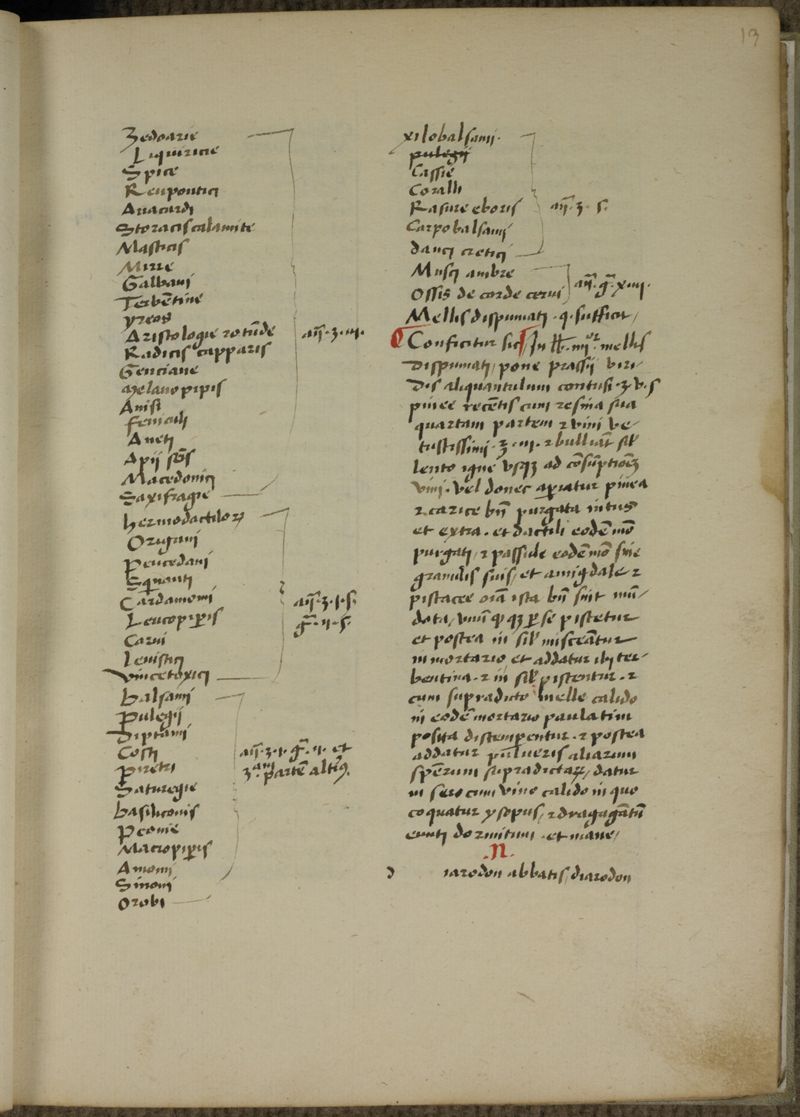 13
Zedoarie
Liquiricie
Spice
Reupontici
Anacardi
Storacis calamite
Masticis
Mirre
Galbani
Terbentine
yreos
Aristologie rotūde
Radicis capparis
Genciane
Melanopipis
Anisi
feniculi
Aneti
Apij
Macedonici
Saxifragie
añ. ʒ. iij.
hermodactiloꝝ
Origani
Peucedani
Squinanti
Cardamomi
Leucopiperis
Carui
leuistici
vincetoxici
añ. ʒ. i. s.
gͣ. ij. s.
balsami
Pulegij
Diptami
Costi
Piretri
Saturegie
basiliconis
Peonie
Macropiperis
Amomi
Sinoni
Orobi
añ. ʒ. i. gͣ. ij. et
partē altiꝰ
xilobalsami.
pulegij
Cassie
Coralli
Rasure eboris
Carpobalsami
dauci cretici
añ. ʒ. s.
Musci ambre
Ossis de corde cerui
añ. gͣ. xiiij.
Mellis dispumati . q. sufficit /
Conficitur sic In lb. iiijor. mellis
dispumati / pone prassij viri-
dis aliquantulum contusi ʒ v. s
pinee recētis cum resina sua
quartam partem ⁊ vini ve-
tustissimi . ʒ. iij. ⁊ bulliāt sil
lento igne vsqꝫ ad cōsūptionē
vini . vel donec apiatur pinea
⁊ carice bn̄ purgata intus
et extra . et dactili eodē mō
purgati, ⁊ passule eodē mō sine
granulis suis / et amigdale ⁊
pistacee oīa ista bn̄ sint mū-
data / vnūqdqꝫ p se pistetur
et postea in sil misceātur
in mortario et addatur ibi ter-
bentina . ⁊ in sil pistentur . ⁊
cum supradicto melle calido
in eodē mortario paulatim
posita distemperentur . ⁊ postea
addatur pulueris aliarum
spērum supradictaꝝ / datur
in sero cum vino calido in quo
coquatur ysopus / ⁊ dragagātū
eunti dormitum . et mane /
.N.
D iarodon abbatis / diarodon